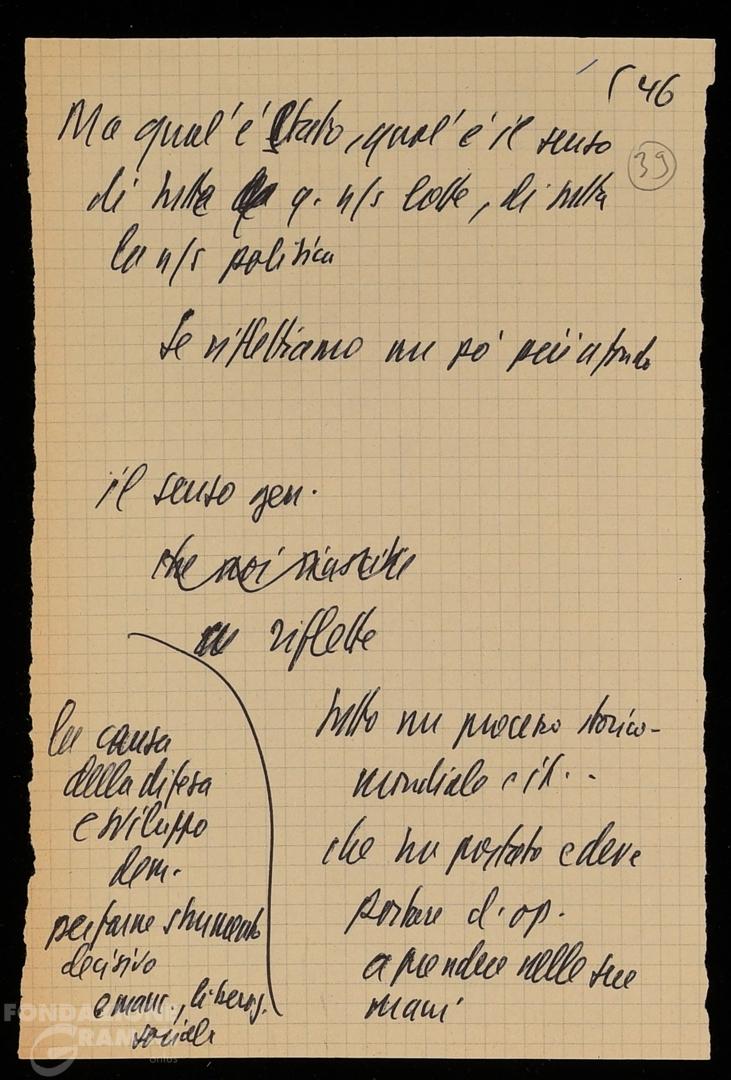 546
39
Ma qual'è stato, qual'è il senso
di tutta q. n/s lotta, di tutta
la n/s politica
Se riflettiamo un pò più a fondo
il senso gen.
che noi
riflette
la causa
della difesa
e sviluppo
dem.
per farne strumento
decisivo
emanc., liberaz.
sociale
tutto un processo storico-
mondiale e it..
che ha portato e deve
portare cl. op.
a prendere nelle sue
mani
FONDAZIONE
GRAMSCI
onlus